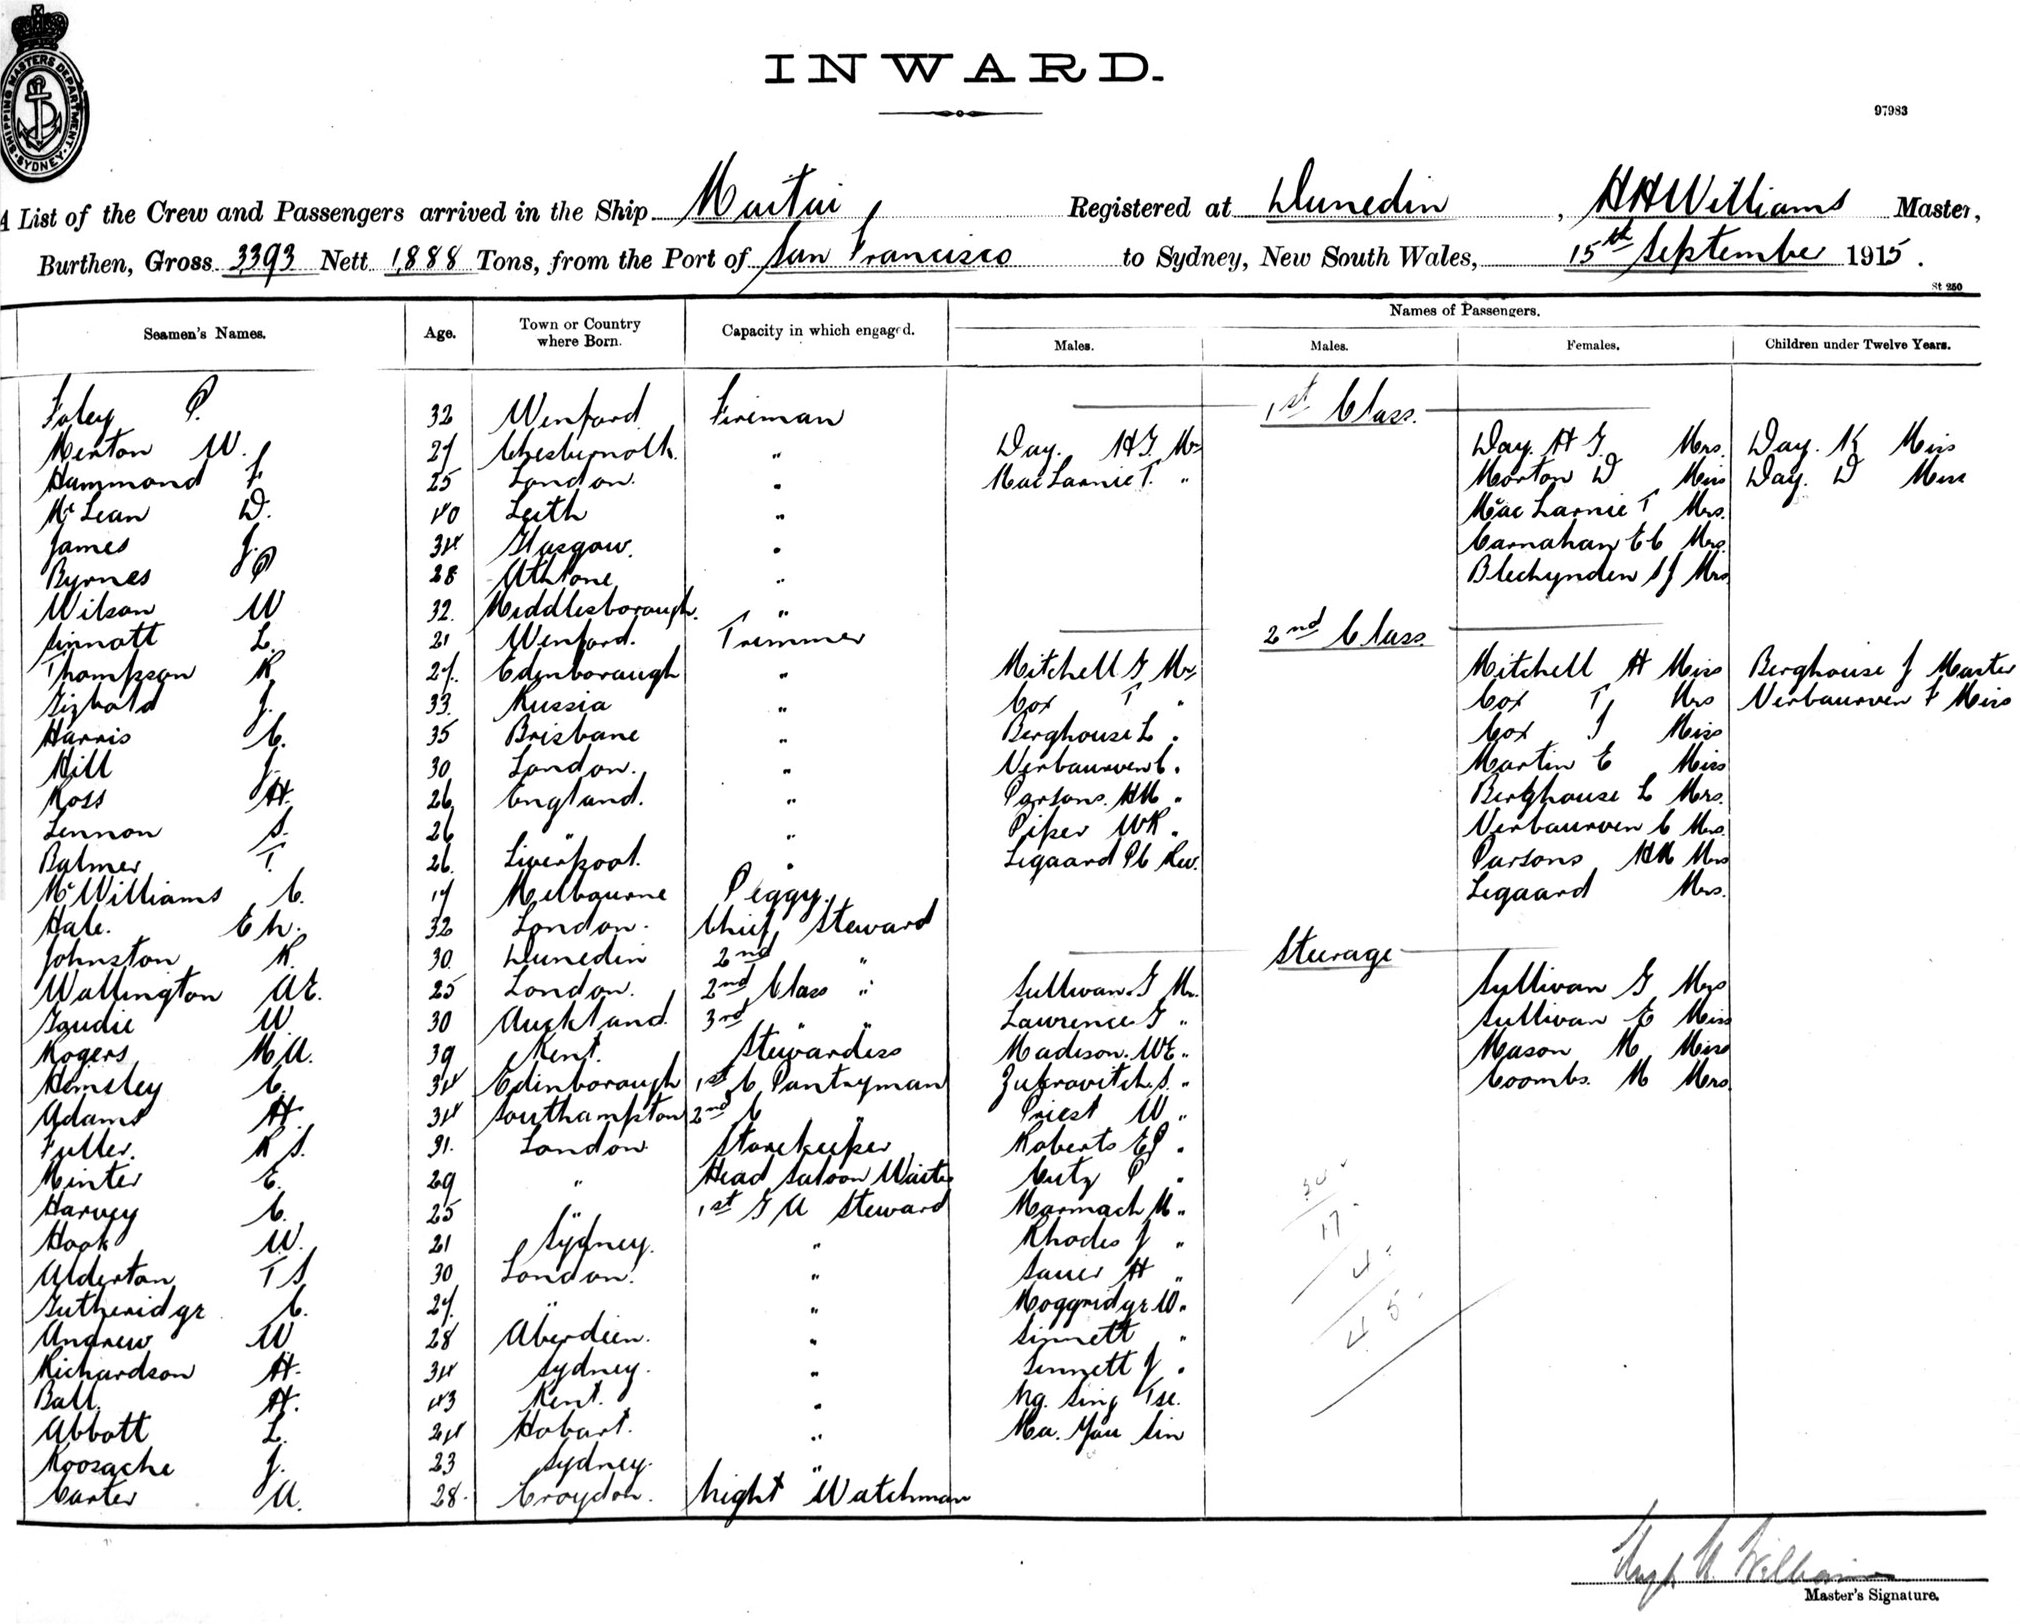 SHIPPING MASTERS DEPARTMENT
SYDNEY
INWARD.
97983
A List of the Crew and Passengers arrived in the Ship Maitai Registered at Dunedin, H H Williams Master,
Burthen, Gross 3393 Nett 1,888 Tons, from the Port of San Francisco to Sydney, New South Wales, 15th September 1915.
St 250
Names of Passengers.
Seamen's Names. Age. Town or Country where Born. Capacity in which engaged. Males. Males. Females. Children under Twelve Years.
Foley P. 32 Wexford Fireman 1st Class.
Merton W. 27 " Day. H G. Mr Day. H G. Mrs. Day. K Miss
Hammond F. 25 London. " MacLarnie T. " Morton D Miss Day. D Miss
McLean D. 40 Leith " MacLarnie T Mrs.
James J. 34 Glasgow. " Carnahan E C Mrs.
Byrnes J P 28 Athlone " Blechynden S J Mrs
Wilson W 32. Middlesborough. "
Sinnott L. 21 Wexford. Trimmer 2nd Class.
Thompson R 27. Edinborough " Mitchell G Mr Mitchell H Miss Berghouse J Master
J. 33. Russia " Cox T " Cox T Mrs Verbaurven F Miss
Harris C. 35 Brisbane " Berghouse L. " Cox J Miss
Hill J. 30 London. " Verbaurven C. " Martin E Miss
Ross H. 26 England. " Parsons. H M " Berghouse L Mrs.
Lennon S. 26 " " Piper W R. " Verbaurven C Mrs.
Balmer T. 26. Liverpool. " Legaard P C Rev. Parsons H M Mrs
McWilliams C. 17 Melbourne Peggy. Legaard Mrs.
Hale. E h. 32 London. Chief Steward
Johnston R. 30. Dunedin 2nd " Steerage
Wallington A E. 25 London. 2nd Class " Sullivan. G Mr. Sullivan G Mrs
Goudie W. 30 Auckland. 3rd " " Lawrence. G " Sullivan E Miss
Rogers M A. 39 Kent. Stewardess Madison. W E. " Mason M Miss
Hemsley C. 34 Edinborough 1st C Pantryman Zukrovitch. S. " Coombs. M Mrs.
Adams H. 34 Southampton 2nd C " Priest W "
Fuller. R S. 31. London Storekeeper Roberts E P "
Minter E. 29 " Head Saloon Waiter Cutz P "
Harvey C. 25 " 1st G A Steward Marmach M. "
Hook W. 21 Sydney. " Rhodes J "
Alderton T S 30 London. " Sauer H "
Gutheridge C. 27. " " Moggridge W. "
Andrew W 28 Aberdeen. " Sinnett "
Richardson H. 34 Sydney. " Sennett J "
Ball. H. 43 Kent. " Ng. Sing Tse.
Abbott L. 24 Hobart. " Ma. You Sin
Koosache J. 23 Sydney. "
Carter A. 28. Croydon. Night Watchman
17
4
45
Hugh H. Williams
Master's Signature.